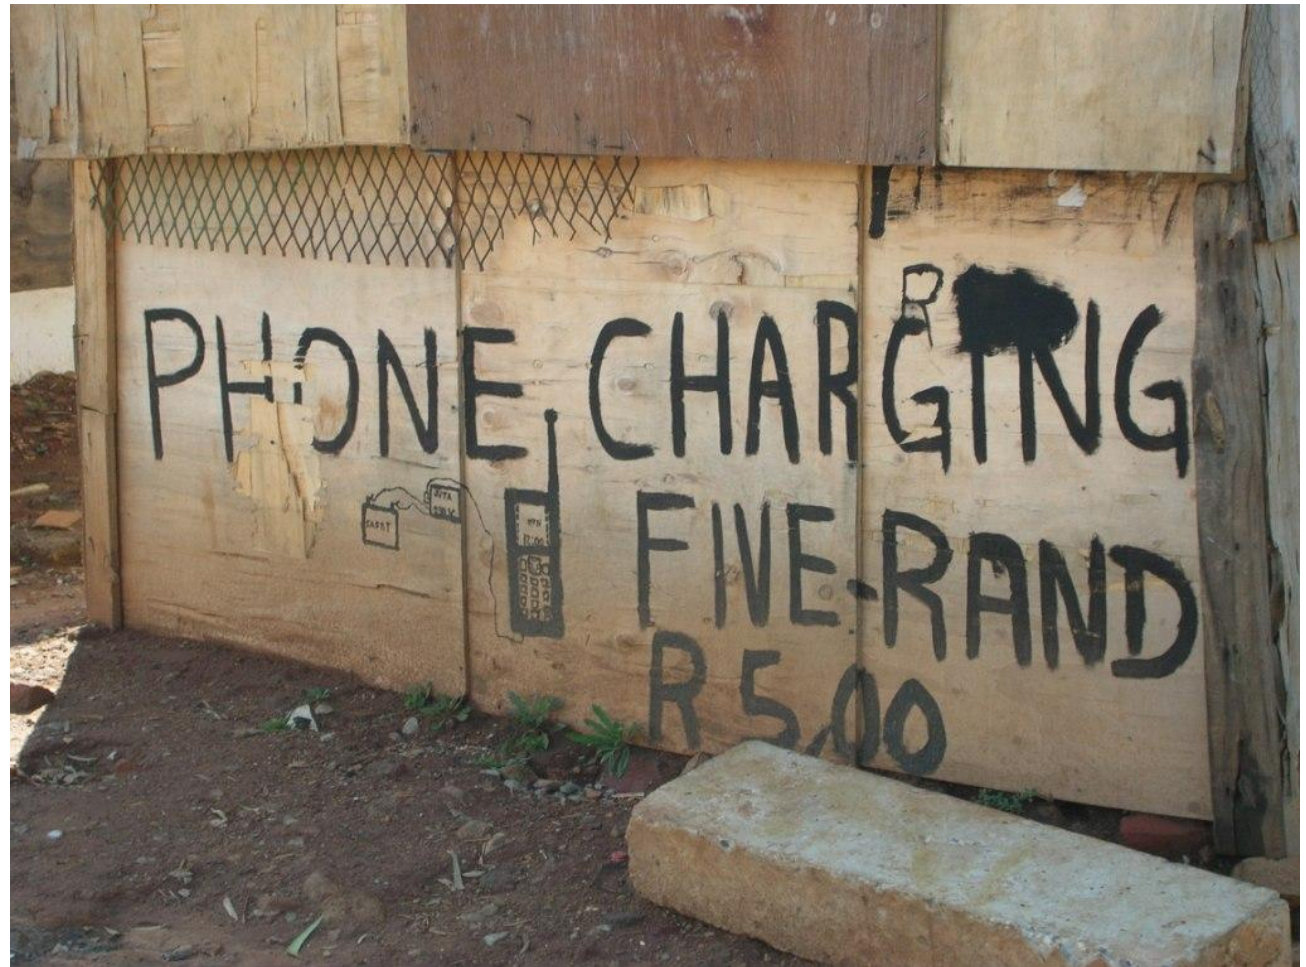 R
PHONE CHARGING
FIVE-RAND
R 5,00